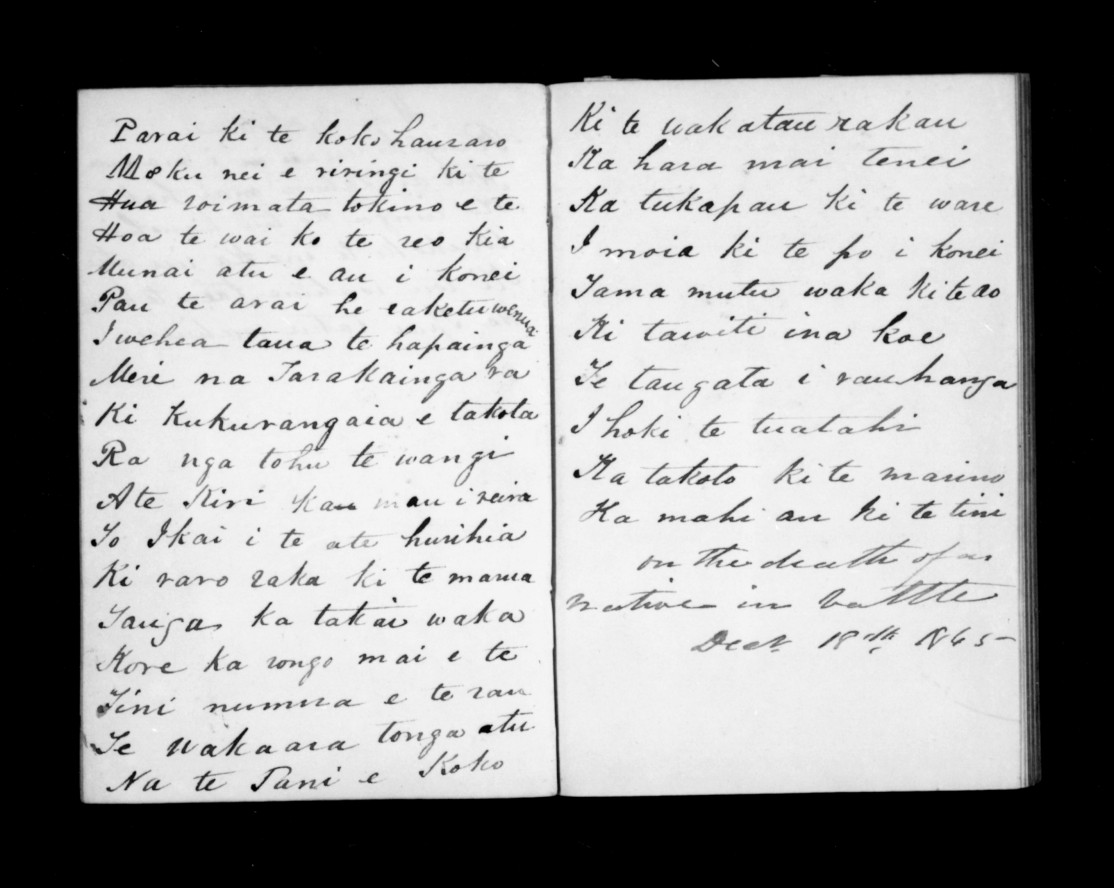 Parai ki te koko hauraro
Moku nei e riringi ki te
Hua roimata tokino e te
Hoa te wai ko te reo kia
Munai atu e au i konei
Pau te arai he eaketu wenua
I wehea taua te hapainga
Meri na Tarakainga ra
Ki Kukurangaia e takota
Ra nga tohu te wangi
Ate Kiri kau mau i reira
To Ikai i te ate hurihia
Ki raro raka ki te mama
Tauga ka takai waka
Kore ka rongo mai e te
Tini numura e te rau
Te wakaara tonga atu
Na te Pani e Koko
Ki te wakatau rakau
Ka hara mai tenei
Ka tukapau ki te ware
I moia ki te po i konei
Tama mutu waka ki te ao
Ki tawiti ina koe
Te taugata i rauhanga
I hoki te tuatahi
Ka takoto ki te marino
Ka mahi au ki te tini
on the death of a
native in battle
Decr 18th 1865